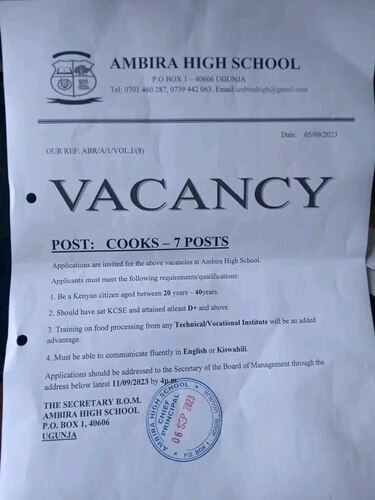 AMBIRA HIGH SCHOOL
P.O BOX 1 – 40606 UGUNJA
Tel: 0701 460 287, 0739 442 063. Email:ambirahigh@gmail.com
Date: 05/09/2023
OUR REF: ABR/A/1/VOL.I/(8)
VACANCY
POST: COOKS – 7 POSTS
Applications are invited for the above vacancies at Ambira High School.
Applicants must meet the following requirements/qualifications:
1. Be a Kenyan citizen aged between 20 years – 40years.
2. Should have sat KCSE and attained atleast D+ and above.
3. Training on food processing from any Technical/Vocational Institute will be an added
advantage.
4. Must be able to communicate fluently in English or Kiswahili.
Applications should be addressed to the Secretary of the Board of Management through the
address below latest 11/09/2023 by 4p.m.
THE SECRETARY B.O.M.
AMBIRA HIGH SCHOOL
P.O. BOX 1, 40606
UGUNJA
AMBIRA HIGH SCHOOL
CHIEF
PRINCIPAL
06 SEP 2023